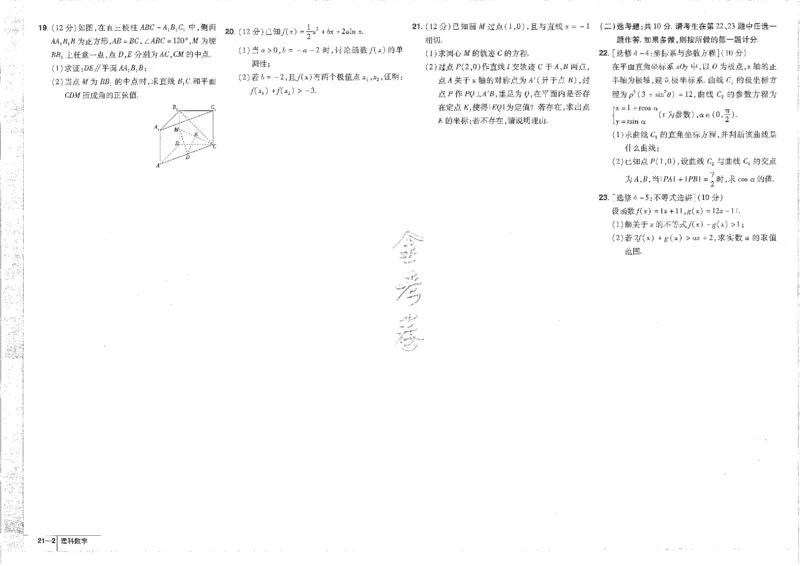 19. (12分)如图,在直三棱柱 ABC-A₁B₁C₁ 中,侧面
AA₁B₁B为正方形,AB=BC,∠ABC=120°,M为棱
BB₁上任意一点,点D,E分别为AC,CM的中点.
(1)求证:DE∥平面AA₁B₁B;
(2)当点M为BB₁的中点时,求直线B₁C和平面
CDM所成角的正弦值.
B₁
C₁
A₁
M
E
B
C
D
A
20. (12分)已知f(x)=1/2x²+bx+2aln x.
(1)当a>0,b=-a-2时,讨论函数f(x)的单
调性;
(2)若b=-2,且f(x)有两个极值点x₁,x₂,证明:
f(x₁)+f(x₂)>-3.
21. (12分)已知圆M过点(1,0),且与直线x=-1
相切.
(1)求圆心M的轨迹C的方程.
(2)过点P(2,0)作直线l交轨迹C于A,B两点,
点A关于x轴的对称点为A'(异于点B),过
点P作PQ⊥A'B,垂足为Q,在平面内是否存
在定点K,使得|KQ|为定值?若存在,求出点
K的坐标;若不存在,请说明理由.
(二)选考题:共10分.请考生在第22、23题中任选一
题作答.如果多做,则按所做的第一题计分.
22. [选修4-4:坐标系与参数方程](10分)
在平面直角坐标系xOy中,以O为极点,x轴的正
半轴为极轴,建立极坐标系.曲线C₁的极坐标方
程为ρ²(3+sin²θ)=12,曲线C₂的参数方程为
{x=1+tcos α, y=tsin α (t为参数),α∈(0,π/2).
(1)求曲线C₁的直角坐标方程,并判断该曲线是
什么曲线;
(2)已知点P(1,0),设曲线C₂与曲线C₁的交点
为A,B,当|PA|+|PB|=7/2时,求cos α的值.
23. [选修4-5:不等式选讲](10分)
设函数f(x)=|x+1|,g(x)=|2x-1|.
(1)解关于x的不等式f(x)-g(x)>1;
(2)若2f(x)+g(x)>ax+2,求实数a的取值
范围.
金
考
卷
21—2 理科数学